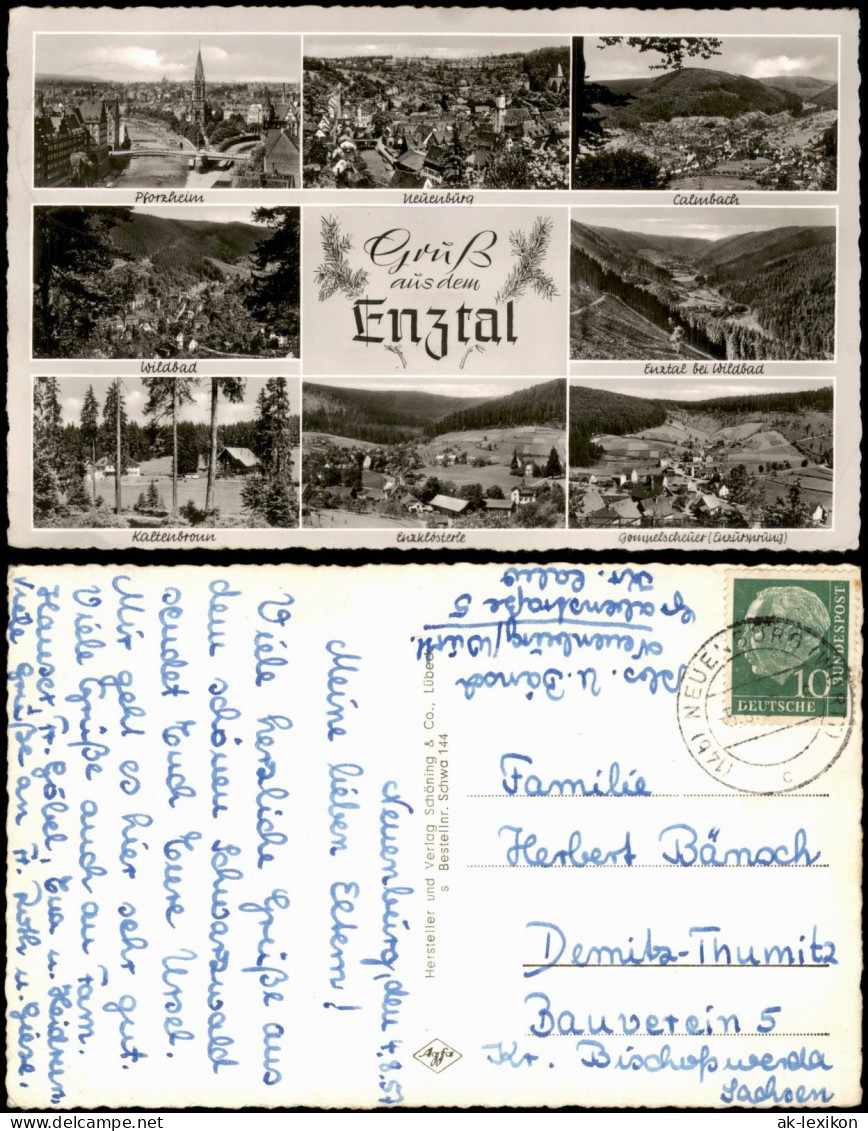 Pforzheim
Neuenbürg
Calmbach
Gruß
aus dem
Enztal
Wildbad
Enztal bei Wildbad
Kaltenbronn
Enzklösterle
Gompelscheuer (Enzursprung)
Neuenbürg, den 4.8.57
Meine lieben Eltern!
Viele herzliche Grüße aus
dem schönen Schwarzwald
sendet Euch Eure Ursel.
Mir geht es hier sehr gut.
Viele Grüße auch an Fam.
Hauser, Fr. Göbel, Eva u. Heidrun,
Viele Grüße an Fr. Roth u. Giese.
Hersteller und Verlag Schöning & Co., Lübeck
s Bestellnr. Schwa 144
Agfa
U. Bänsch
Neuenbürg/Württ.
Grabenstraße 5
Kr. Calw
(14b) NEUENBÜRG (WÜRTT)
c
10
DEUTSCHE
BUNDESPOST
Familie
Herbert Bänsch
Demitz-Thumitz
Bauverein 5
Kr. Bischofswerda
Sachsen
ak-lexikon